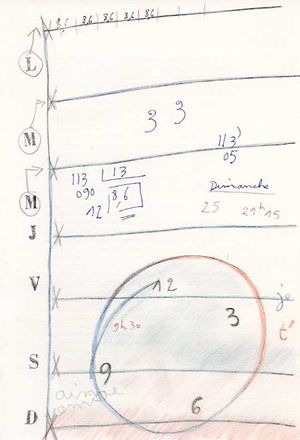 8,6 8,6 8,6 8,6 8,6
L
M
3 3
113
05
113 | 13
090 8,6
12
M
Dimanche
25 21h15
J
V
12
je
9h30
3
t'
S
9
aime
6
D